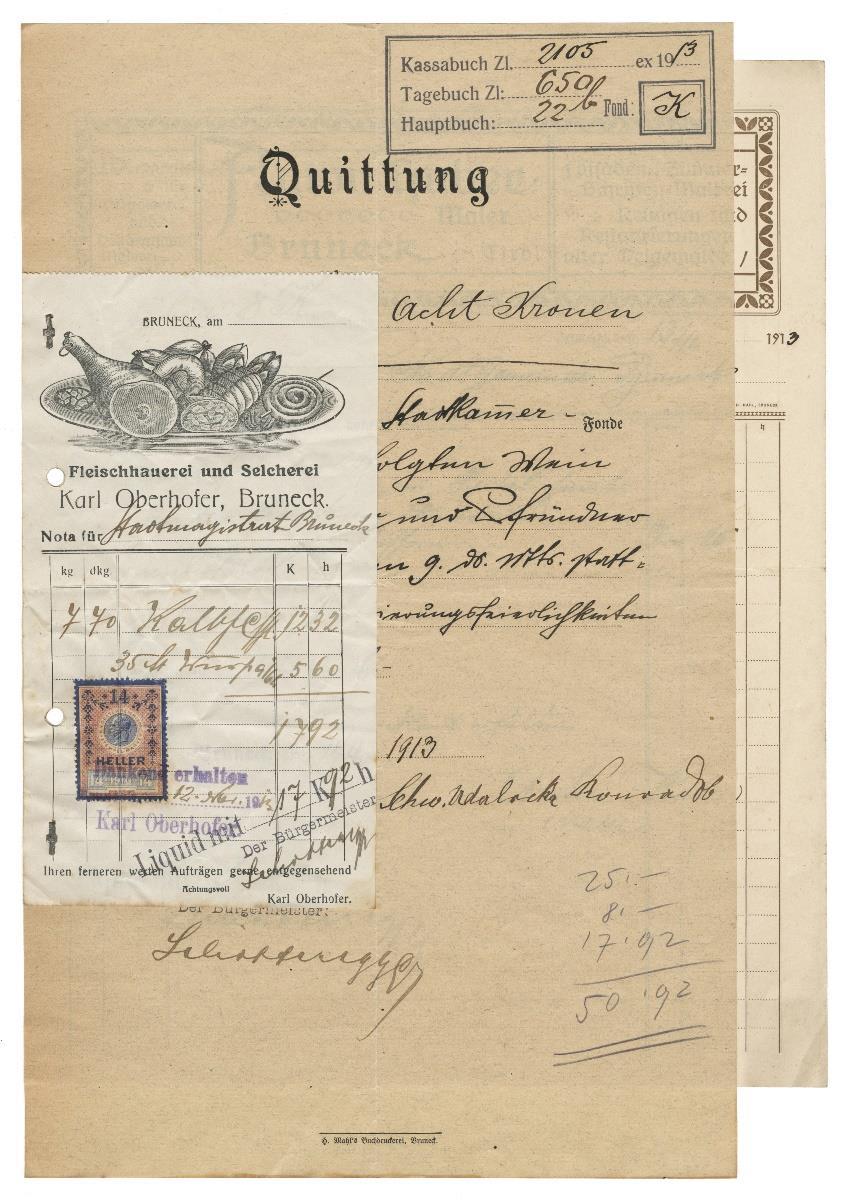 Kassabuch Zl. 2105 ex 1913
Tagebuch Zl: 650
Hauptbuch: 22b Fond: K
Quittung
Acht Kronen
Stadtkammer - Fonde
olgten Wein
und Pfründner
n 9. ds. Mts. statt=
ierungsfeierlichkeiten
1913
Chw. Udalrika Konrad Ob
25.-
8.-
17.92
50.92
Der Bürgermeister:
Schifferegger
H. Mahl's Buchdruckerei, Bruneck.
BRUNECK, am
Fleischhauerei und Selcherei
Karl Oberhofer, Bruneck.
Nota für Stadtmagistrat Bruneck
kg dkg K h
7 70 Kalbfl. 12 32
35 5 60
17 92
14
HELLER
Dankend erhalten
12. Nov. 1913
Karl Oberhofer
Liquid mit 17 K 92 h
Der Bürgermeister
Ihren ferneren werten Aufträgen gerne entgegensehend
Achtungsvoll
Karl Oberhofer.
1913
h